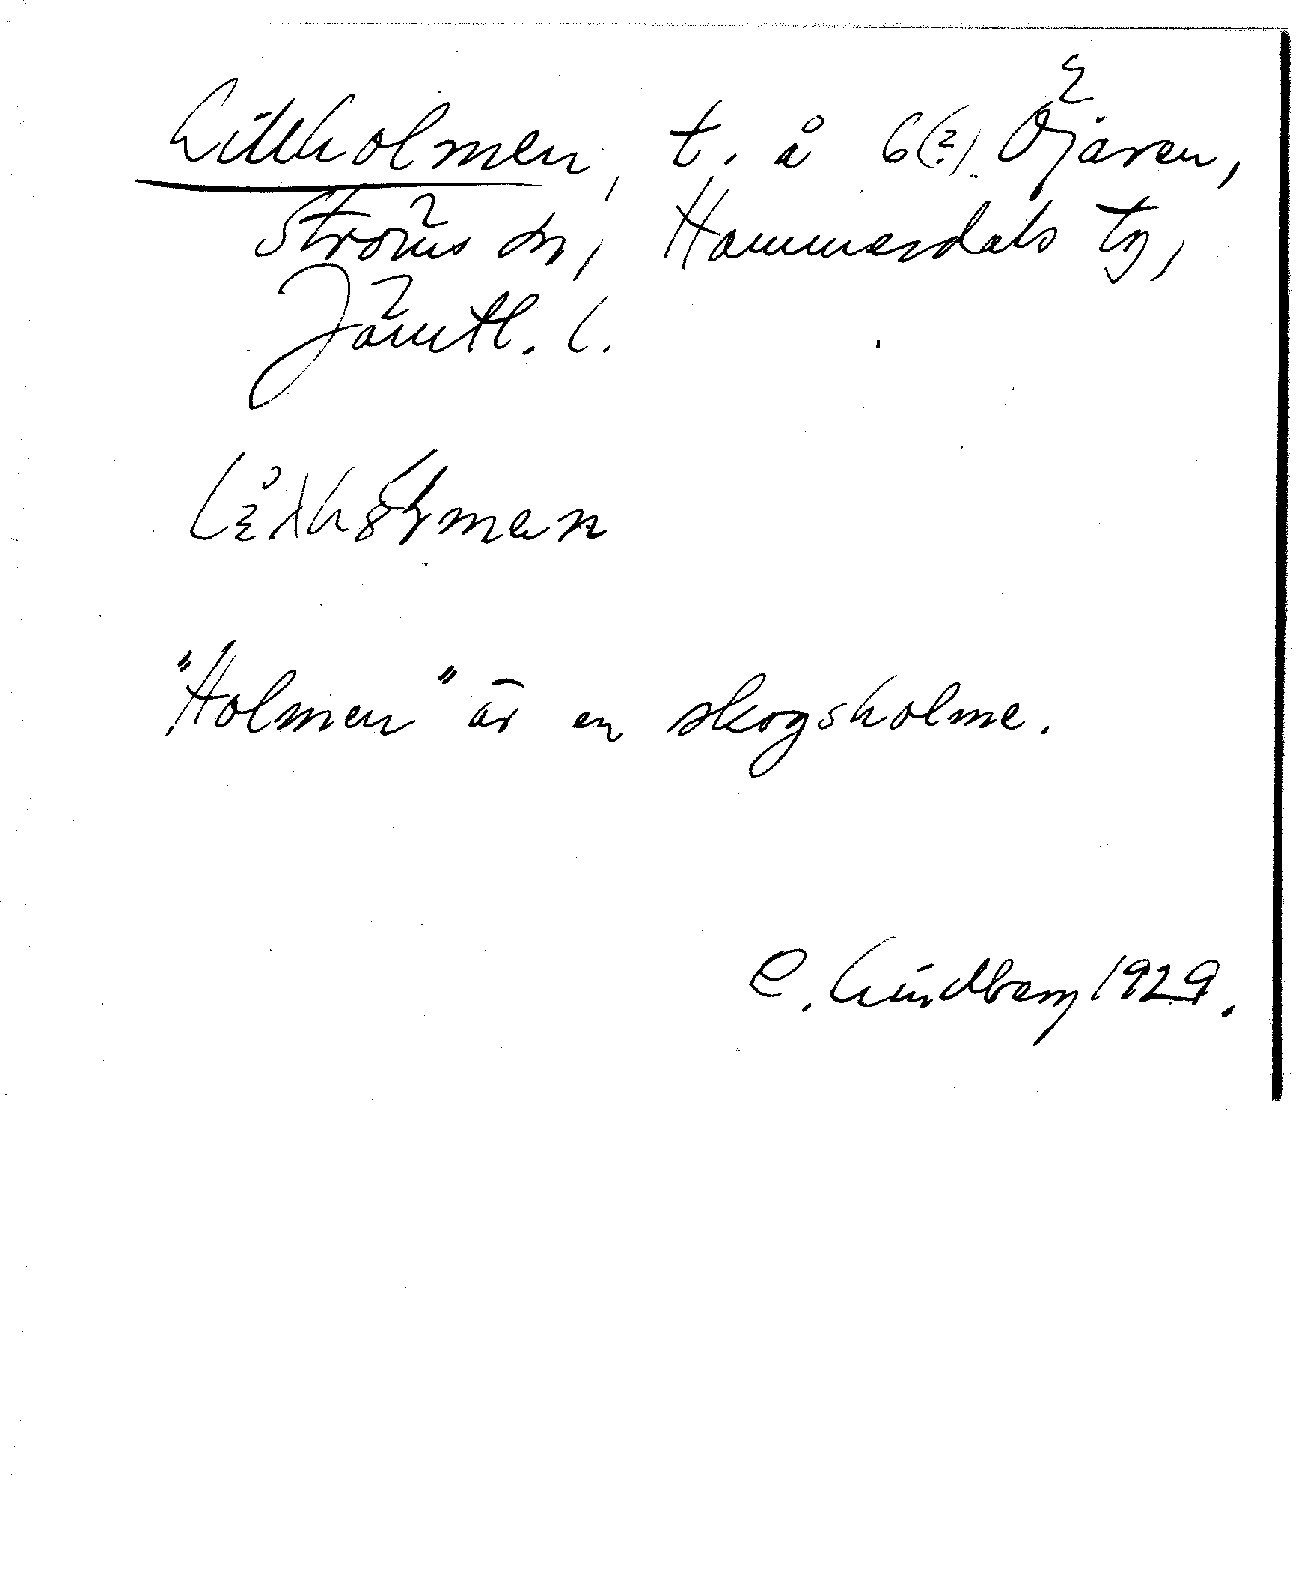 Lillholmen, t. å 6(2) Öjaren,
Ströms sn, Hammerdals tg,
Jämtl. l.
"Holmen" är en skogsholme.
E. Lundberg 1929.